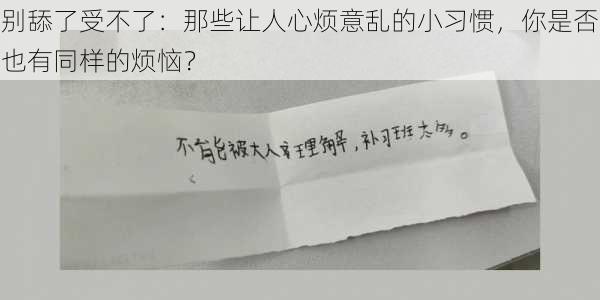 别舔了受不了：那些让人心烦意乱的小习惯，你是否
也有同样的烦恼？
不能被大人理解，补习班太多。